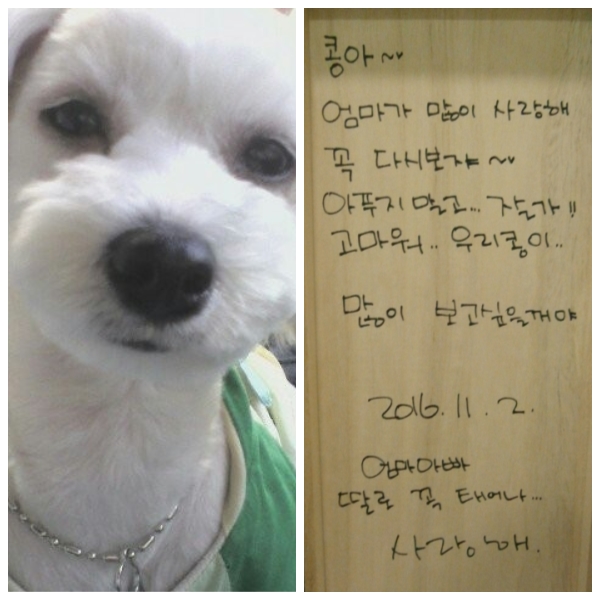 콩아~
엄마가 많이 사랑해
꼭 다시보쟈~
아푸지말고... 잘가!!
고마워.. 우리콩이..
많이 보고싶을꺼야
2016.11.2.
엄마아빠
딸로 꼭 태어나...
사랑해.